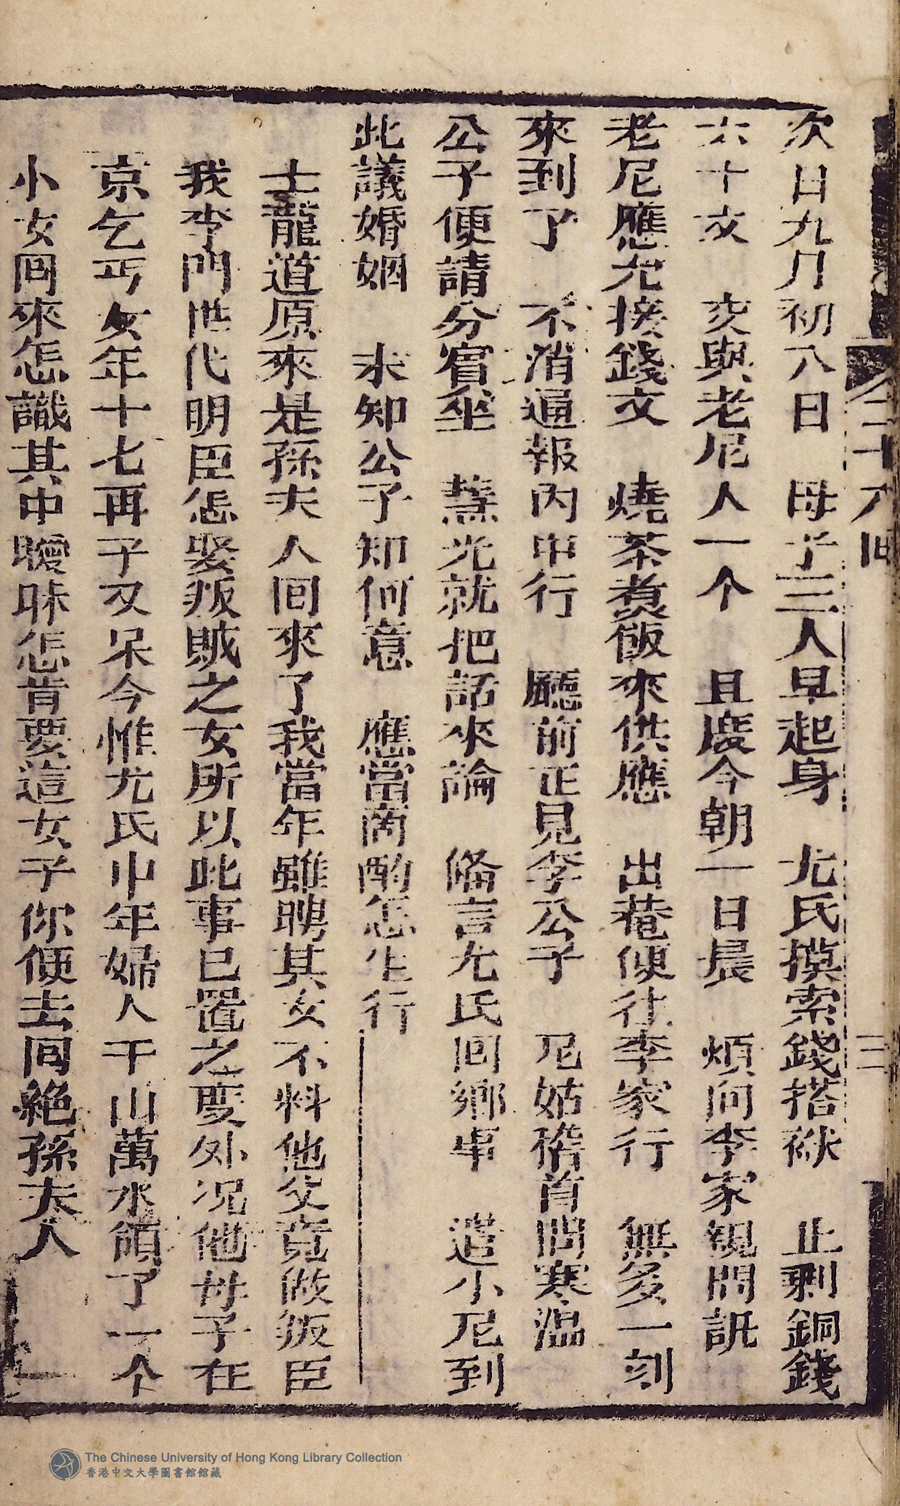 二十八回
三
次日九月初八日　母子三人早起身　尤氏摸索錢搭袱　止剩銅錢
六十文　交與老尼人一个　且度今朝一日晨　煩问李家親問訊
老尼應允接錢文　燒茶煮飯來供應　出菴便往李家行　無多一刻
來到了　不消通報内中行　廳前正見李公子　尼姑稽首問寒溫
公子便請分宿坐　慧光就把話來論　俻言尤氏囬鄉事　遣小尼到
此議婚姻　未知公子知何意　應當啇酌怎生行
士龍道原來是孫夫人囬來了我當年雖聘其女不料他父竟做叛臣
我李門世代明臣怎娶叛賊之女所以此事已置之度外况他母子在
京乞丐女年十七再子又呆今惟尤氏中年婦人千山萬水領了一个
小女囘來怎識其中曖昧怎肯要這女子你便去囘絶孫夫人
The Chinese University of Hong Kong Library Collection
香港中文大學圖書館館藏